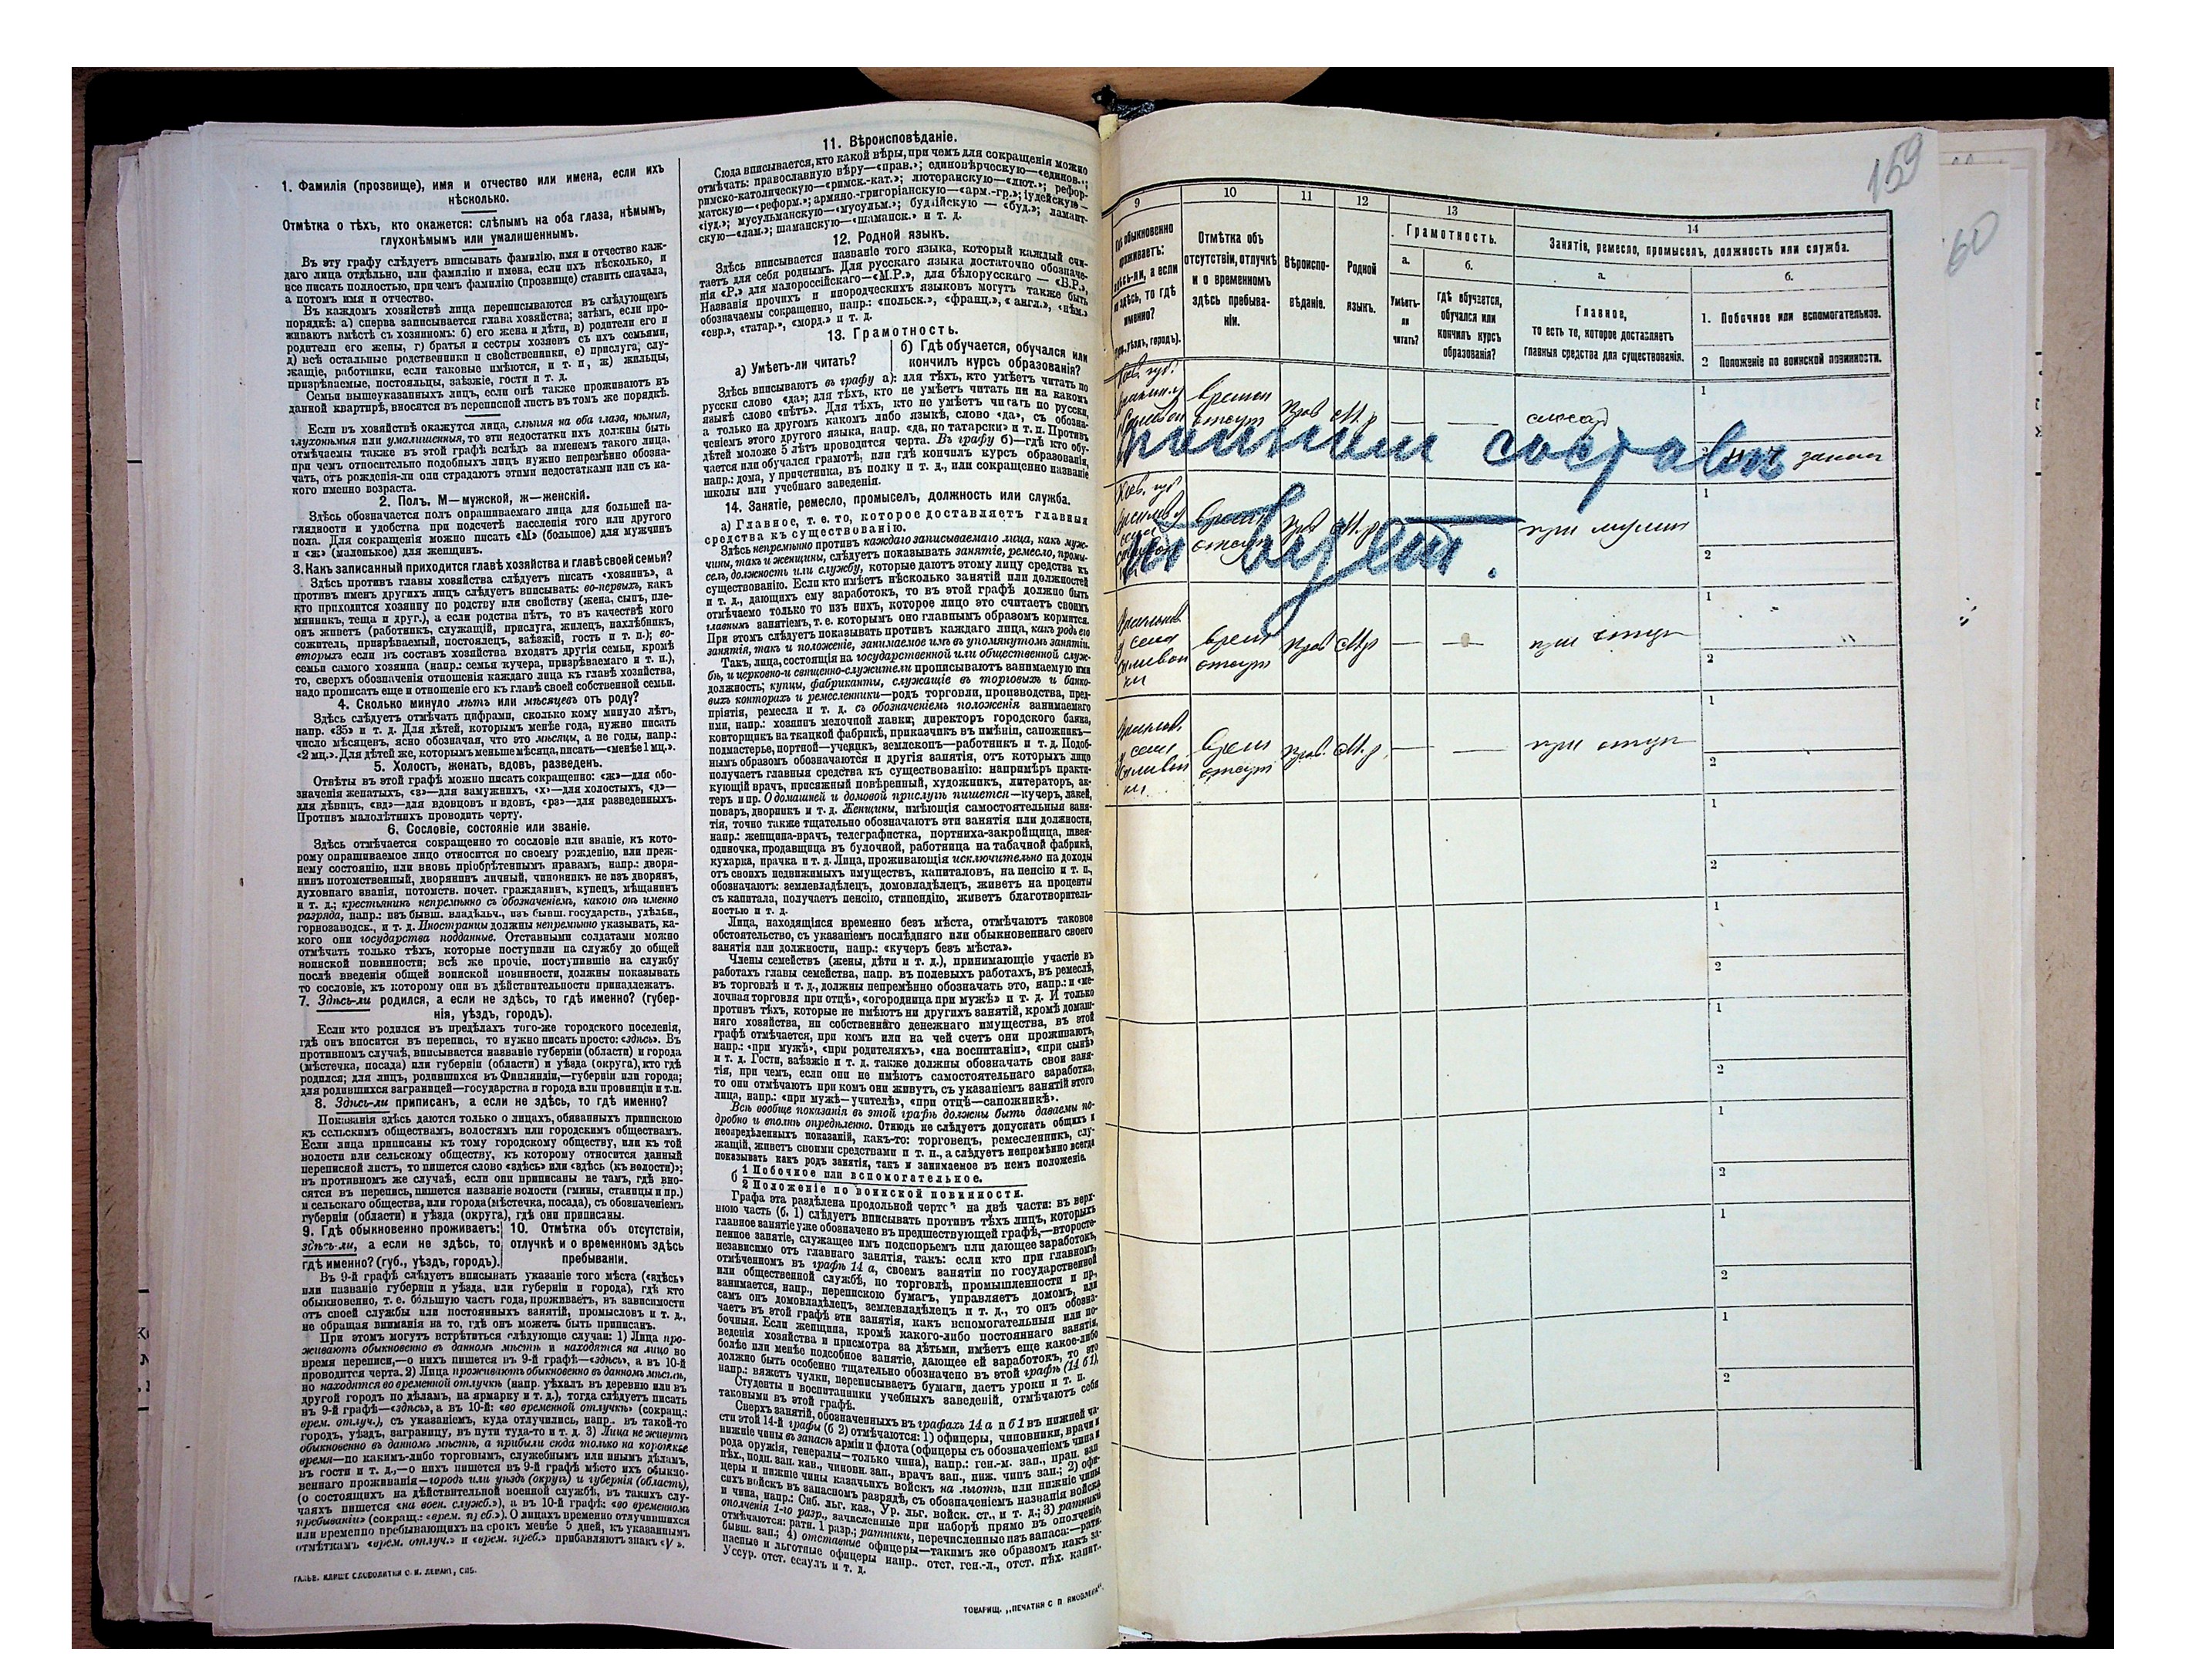 1. Фамилія (прозвище), имя и отчество или имена, если ихъ
нѣсколько.
Отмѣтка о тѣхъ, кто окажется: слѣпымъ на оба глаза, нѣмымъ,
глухонѣмымъ или умалишеннымъ.
Въ эту графу слѣдуетъ вписывать фамилію, имя и отчество каж-
даго лица отдѣльно, или фамилію и имена, если ихъ нѣсколько, и
все писать полностью, при чемъ фамилію (прозвище) ставить сначала,
а потомъ имя и отчество.
Въ каждомъ хозяйствѣ лица переписываются въ слѣдующемъ
порядкѣ: а) сперва записывается глава хозяйства; затѣмъ, если про-
живаютъ вмѣстѣ съ хозяиномъ: б) его жена и дѣти, в) родители его и
родители его жены, г) братья и сестры хозяевъ съ ихъ семьями,
д) всѣ остальные родственники и свойственники, е) прислуга, слу-
жащіе, работники, если таковые имѣются, и т. п., ж) жильцы,
призрѣваемые, постояльцы, заѣзжіе, гости и т. п.
Семьи вышеуказанныхъ лицъ, если онѣ также проживаютъ въ
данной квартирѣ, вносятся въ переписной листъ въ томъ же порядкѣ.
Если въ хозяйствѣ окажутся лица, слѣпыя на оба глаза, нѣмыя,
глухонѣмыя или умалишенныя, то эти недостатки ихъ должны быть
отмѣчаемы также въ этой графѣ вслѣдъ за именемъ такого лица,
при чемъ относительно подобныхъ лицъ нужно непремѣнно обозна-
чать, отъ рожденія-ли они страдаютъ этими недостатками или съ ка-
кого именно возраста.
2. Полъ, М—мужской, ж—женскій.
Здѣсь обозначается полъ опрашиваемаго лица для большей на-
глядности и удобства при подсчетѣ населенія того или другого
пола. Для сокращенія можно писать «М» (большое) для мужчинъ
и «ж» (маленькое) для женщинъ.
3. Какъ записанный приходится главѣ хозяйства и главѣ своей семьи?
Здѣсь противъ главы хозяйства слѣдуетъ писать «хозяинъ», а
противъ именъ другихъ лицъ слѣдуетъ вписывать: во-первыхъ, какъ
кто приходится хозяину по родству или свойству (жена, сынъ, пле-
мянникъ, теща и друг.), а если родства нѣтъ, то въ качествѣ кого
онъ живетъ (работникъ, служащій, прислуга, жилецъ, нахлѣбникъ,
сожитель, призрѣваемый, постоялецъ, заѣзжій, гость и т. п.); во-
вторыхъ если въ составъ хозяйства входятъ другія семьи, кромѣ
семьи самого хозяина (напр.: семья кучера, призрѣваемаго и т. п.),
то, сверхъ обозначенія отношенія каждаго лица къ главѣ хозяйства,
надо прописать еще и отношеніе его къ главѣ своей собственной семьи.
4. Сколько минуло лѣтъ или мѣсяцевъ отъ роду?
Здѣсь слѣдуетъ отмѣчать цифрами, сколько кому минуло лѣтъ,
напр. «35» и т. д. Для дѣтей, которымъ менѣе года, нужно писать
число мѣсяцевъ, ясно обозначая, что это мѣсяцы, а не годы, напр.:
«2 мц.». Для дѣтей же, которымъ меньше мѣсяца, писать—«менѣе 1 мц.».
5. Холостъ, женатъ, вдовъ, разведенъ.
Отвѣты въ этой графѣ можно писать сокращенно: «ж»—для обо-
значенія женатыхъ, «з»—для замужнихъ, «х»—для холостыхъ, «д»—
для дѣвицъ, «вд»—для вдовцовъ и вдовъ, «рз»—для разведенныхъ.
Противъ малолѣтнихъ проводить черту.
6. Сословіе, состояніе или званіе.
Здѣсь отмѣчается сокращенно то сословіе или званіе, къ кото-
рому опрашиваемое лицо относится по своему рожденію, или преж-
нему состоянію, или вновь пріобрѣтеннымъ правамъ, напр.: дворя-
нинъ потомственный, дворянинъ личный, чиновникъ не изъ дворянъ,
духовнаго званія, потомств. почет. гражданинъ, купецъ, мѣщанинъ
и т. д.; крестьянинъ непремѣнно съ обозначеніемъ, какого онъ именно
разряда, напр.: изъ бывш. владѣльч., изъ бывш. государств., удѣльн.,
горнозаводск., и т. д. Иностранцы должны непремѣнно указывать, ка-
кого они государства подданные. Отставными солдатами можно
отмѣчать только тѣхъ, которые поступили на службу до общей
воинской повинности; всѣ же прочіе, поступившіе на службу
послѣ введенія общей воинской повинности, должны показывать
то сословіе, къ которому они въ дѣйствительности принадлежатъ.
7. Здѣсь-ли родился, а если не здѣсь, то гдѣ именно? (губер-
нія, уѣздъ, городъ).
Если кто родился въ предѣлахъ того-же городского поселенія,
гдѣ онъ вносится въ перепись, то нужно писать просто: «здѣсь». Въ
противномъ случаѣ, вписывается названіе губерніи (области) и города
(мѣстечка, посада) или губерніи (области) и уѣзда (округа), кто гдѣ
родился; для лицъ, родившихся въ Финляндіи,—губерніи или города;
для родившихся заграницей—государства и города или провинціи и т.п.
8. Здѣсь-ли приписанъ, а если не здѣсь, то гдѣ именно?
Показанія здѣсь даются только о лицахъ, обязанныхъ припискою
къ сельскимъ обществамъ, волостямъ или городскимъ обществамъ.
Если лица приписаны къ тому городскому обществу, или къ той
волости или сельскому обществу, къ которому относится данный
переписной листъ, то пишется слово «здѣсь» или «здѣсь (къ волости)»;
въ противномъ же случаѣ, если они приписаны не тамъ, гдѣ вно-
сятся въ перепись, пишется названіе волости (гмины, станицы и пр.)
и сельскаго общества, или города (мѣстечка, посада), съ обозначеніемъ
губерніи (области) и уѣзда (округа), гдѣ они приписаны.
9. Гдѣ обыкновенно проживаетъ:
здѣсь-ли, а если не здѣсь, то
гдѣ именно? (губ., уѣздъ, городъ).
10. Отмѣтка объ отсутствіи,
отлучкѣ и о временномъ здѣсь
пребываніи.
Въ 9-й графѣ слѣдуетъ вписывать указаніе того мѣста («здѣсь»
или названіе губерніи и уѣзда, или губерніи и города), гдѣ кто
обыкновенно, т. е. бо́льшую часть года, проживаетъ, въ зависимости
отъ своей службы или постоянныхъ занятій, промысловъ и т. д.,
не обращая вниманія на то, гдѣ онъ можетъ быть приписанъ.
При этомъ могутъ встрѣтиться слѣдующіе случаи: 1) Лица про-
живаютъ обыкновенно въ данномъ мѣстѣ и находятся на лицо во
время переписи,—о нихъ пишется въ 9-й графѣ—«здѣсь», а въ 10-й
проводится черта. 2) Лица проживаютъ обыкновенно въ данномъ мѣстѣ,
но находятся во временной отлучкѣ (напр. уѣхалъ въ деревню или въ
другой городъ по дѣламъ, на ярмарку и т. д.), тогда слѣдуетъ писать
въ 9-й графѣ—«здѣсь», а въ 10-й: «во временной отлучкѣ» (сокращ.:
врем. отлуч.), съ указаніемъ, куда отлучились, напр.. въ такой-то
городъ, уѣздъ, заграницу, въ пути туда-то и т. д. 3) Лица не живутъ
обыкновенно въ данномъ мѣстѣ, а прибыли сюда только на короткое
время—по какимъ-либо торговымъ, служебнымъ или инымъ дѣламъ,
въ гости и т. д.,—о нихъ пишется въ 9-й графѣ мѣсто ихъ обыкно-
веннаго проживанія—городъ или уѣздъ (округъ) и губернія (область),
(о состоящихъ на дѣйствительной военной службѣ, въ такихъ слу-
чаяхъ пишется «на воен. службѣ»), а въ 10-й графѣ: «во временномъ
пребываніи» (сокращ.: «врем. преб.»). О лицахъ временно отлучившихся
или временно пребывающихъ на срокъ менѣе 5 дней, къ указаннымъ
отмѣткамъ «врем. отлуч.» и «врем. преб.» прибавляютъ знакъ «V».
11. Вѣроисповѣданіе.
Сюда вписывается, кто какой вѣры, при чемъ для сокращенія можно
отмѣчать: православную вѣру—«прав.»; единовѣрческую—«единов.»;
римско-католическую—«римск.-кат.»; лютеранскую—«лют.»; рефор-
матскую—«реформ.»; армяно-григоріанскую—«арм.-гр.»; іудейскую—
«іуд.»; мусульманскую—«мусульм.»; буддійскую — «буд.»; ламаит-
скую—«лам.»; шаманскую—«шаманск.» и т. д.
12. Родной языкъ.
Здѣсь вписывается названіе того языка, который каждый счи-
таетъ для себя роднымъ. Для русскаго языка достаточно обозначе-
нія «Р.» для малороссійскаго—«М.Р.», для бѣлорусскаго — «Б.Р.».
Названія прочихъ и инородческихъ языковъ могутъ также быть
обозначаемы сокращенно, напр.: «польск.», «франц.», «англ.», «нѣм.»
«евр.», «татар.», «морд.» и т. д.
13. Грамотность.
а) Умѣетъ-ли читать?
б) Гдѣ обучается, обучался или
кончилъ курсъ образованія?
Здѣсь вписываютъ въ графу а): для тѣхъ, кто умѣетъ читать по
русски слово «да»; для тѣхъ, кто не умѣетъ читать ни на какомъ
языкѣ слово «нѣтъ». Для тѣхъ, кто не умѣетъ читать по русски,
а только на другомъ какомъ либо языкѣ, слово «да», съ обозна-
ченіемъ этого другого языка, напр. «да, по татарски» и т. п. Противъ
дѣтей моложе 5 лѣтъ проводится черта. Въ графу б)—гдѣ кто обу-
чается или обучался грамотѣ, или гдѣ кончилъ курсъ образованія,
напр.: дома, у причетника, въ полку и т. д., или сокращенно названіе
школы или учебнаго заведенія.
14. Занятіе, ремесло, промыселъ, должность или служба.
а) Главное, т. е. то, которое доставляетъ главныя
средства къ существованію.
Здѣсь непремѣнно противъ каждаго записываемаго лица, какъ муж-
чины, такъ и женщины, слѣдуетъ показывать занятіе, ремесло, промы-
селъ, должность или службу, которые даютъ этому лицу средства къ
существованію. Если кто имѣетъ нѣсколько занятій или должностей
и т. д., дающихъ ему заработокъ, то въ этой графѣ должно быть
отмѣчаемо только то изъ нихъ, которое лицо это считаетъ своимъ
главнымъ занятіемъ, т. е. которымъ оно главнымъ образомъ кормится.
При этомъ слѣдуетъ показывать противъ каждаго лица, какъ родъ его
занятія, такъ и положеніе, занимаемое имъ въ упомянутомъ занятіи.
Такъ, лица, состоящія на государственной или общественной служ-
бѣ, и церковно-и священно-служители прописываютъ занимаемую ими
должность; купцы, фабриканты, служащіе въ торговыхъ и банко-
выхъ конторахъ и ремесленники—родъ торговли, производства, пред-
пріятія, ремесла и т. д. съ обозначеніемъ положенія занимаемаго
ими, напр.: хозяинъ мелочной лавки; директоръ городского банка,
конторщикъ на ткацкой фабрикѣ, приказчикъ въ имѣніи, сапожникъ—
подмастерье, портной—ученикъ, землекопъ—работникъ и т. д. Подоб-
нымъ образомъ обозначаются и другія занятія, отъ которыхъ лицо
получаетъ главныя средства къ существованію: напримѣръ практи-
кующій врачъ, присяжный повѣренный, художникъ, литераторъ, ак-
теръ и пр. О домашней и домовой прислугѣ пишется—кучеръ, лакей,
поваръ, дворникъ и т. д. Женщины, имѣющія самостоятельныя заня-
тія, точно также тщательно обозначаютъ эти занятія или должности,
напр.: женщина-врачъ, телеграфистка, портниха-закройщица, швея-
одиночка, продавщица въ булочной, работница на табачной фабрикѣ,
кухарка, прачка и т. д. Лица, проживающія исключительно на доходы
отъ своихъ недвижимыхъ имуществъ, капиталовъ, на пенсію и т. п.,
обозначаютъ: землевладѣлецъ, домовладѣлецъ, живетъ на проценты
съ капитала, получаетъ пенсію, стипендію, живетъ благотворитель-
ностью и т. д.
Лица, находящіяся временно безъ мѣста, отмѣчаютъ таковое
обстоятельство, съ указаніемъ послѣдняго или обыкновеннаго своего
занятія или должности, напр.: «кучеръ безъ мѣста».
Члены семействъ (жены, дѣти и т. д.), принимающіе участіе въ
работахъ главы семейства, напр. въ полевыхъ работахъ, въ ремеслѣ,
въ торговлѣ и т. д., должны непремѣнно обозначать это, напр.: и «ме-
лочная торговля при отцѣ», «огородница при мужѣ» и т. д. И только
противъ тѣхъ, которые не имѣютъ ни другихъ занятій, кромѣ домаш-
няго хозяйства, ни собственнаго денежнаго имущества, въ этой
графѣ отмѣчается, при комъ или на чей счетъ они проживаютъ,
напр.: «при мужѣ», «при родителяхъ», «на воспитаніи», «при сынѣ»
и т. д. Гости, заѣзжіе и т. д. также должны обозначать свои заня-
тія, при чемъ, если они не имѣютъ самостоятельнаго заработка,
то они отмѣчаютъ при комъ они живутъ, съ указаніемъ занятій этого
лица, напр.: «при мужѣ—учителѣ», «при отцѣ—сапожникѣ».
Всѣ вообще показанія въ этой графѣ должны быть даваемы по-
дробно и вполнѣ опредѣленно. Отнюдь не слѣдуетъ допускать общихъ и
неопредѣленныхъ показаній, какъ-то: торговецъ, ремесленникъ, слу-
жащій, живетъ своими средствами и т. п., а слѣдуетъ непремѣнно всегда
показывать какъ родъ занятія, такъ и занимаемое въ немъ положеніе.
б 1 Побочное или вспомогательное.
2 Положеніе по воинской повинности.
Графа эта раздѣлена продольной чертой на двѣ части: въ верх-
нюю часть (б. 1) слѣдуетъ вписывать противъ тѣхъ лицъ, которыхъ
главное занятіе уже обозначено въ предшествующей графѣ,—второсте-
пенное занятіе, служащее имъ подспорьемъ или дающее заработокъ,
независимо отъ главнаго занятія, такъ: если кто при главномъ,
отмѣченномъ въ графѣ 14 а, своемъ занятіи по государственной
или общественной службѣ, по торговлѣ, промышленности и пр.,
занимается, напр., перепискою бумагъ, управляетъ домомъ, или
самъ онъ домовладѣлецъ, землевладѣлецъ и т. д., то онъ обозна-
чаетъ въ этой графѣ эти занятія, какъ вспомогательныя или по-
бочныя. Если женщина, кромѣ какого-либо постояннаго занятія,
веденія хозяйства и присмотра за дѣтьми, имѣетъ еще какое-либо
болѣе или менѣе подсобное занятіе, дающее ей заработокъ, то это
должно быть особенно тщательно обозначено въ этой графѣ (14 б 1),
напр.: вяжетъ чулки, переписываетъ бумаги, даетъ уроки и т. п.
Студенты и воспитанники учебныхъ заведеній, отмѣчаютъ себя
таковыми въ этой графѣ.
Сверхъ занятій, обозначенныхъ въ графахъ 14 а и б 1 въ нижней ча-
сти этой 14-й графы (б 2) отмѣчаются: 1) офицеры, чиновники, врачи и
нижніе чины въ запасѣ арміи и флота (офицеры съ обозначеніемъ чина и
рода оружія, генералы—только чина), напр.: ген.-м. зап., прап. зап
пѣх., подп. зап. кав., чиновн. зап., врачъ зап., ниж. чинъ зап.; 2) офи-
церы и нижніе чины казачьихъ войскъ на льготѣ, или нижніе чины
сихъ войскъ въ запасномъ разрядѣ, съ обозначеніемъ названія войска
и чина, напр.: Сиб. льг. каз., Ур. льг. войск. ст., и т. д.; 3) ратники
ополченія 1-го разр., зачисленные при наборѣ прямо въ ополченіе,
отмѣчаются: ратн. 1 разр.; ратники, перечисленные изъ запаса:—ратн.
бывш. зап.; 4) отставные офицеры—такимъ же образомъ какъ за-
пасные и льготные офицеры напр.. отст. ген.-л., отст. пѣх. капит.,
Уссур. отст. есаулъ и т. д.
ТОВАРИЩ. „ПЕЧАТНИ С П ЯКОВЛЕВА“.
159
60
9
10
11
12
13
14
обыкновенно
проживаетъ:
здѣсь-ли, а если
не здѣсь, то гдѣ
именно?
(губ., уѣздъ, городъ).
Отмѣтка объ
отсутствіи, отлучкѣ
и о временномъ
здѣсь пребыва-
ніи.
Вѣроиспо-
вѣданіе.
Родной
языкъ.
Грамотность.
а.
Умѣетъ-
ли
читать?
б.
гдѣ обучается,
обучался или
кончилъ курсъ
образованія?
Занятія, ремесло, промыселъ, должность или служба.
а.
Главное,
то есть то, которое доставляетъ
главныя средства для существованія.
б.
1. Побочное или вспомогательное.
2 Положеніе по воинской повинности.
Прав
М. р
составъ
1
2
Прав
М. р
при мужѣ
1
2
Прав
М.р
при отцѣ
1
2
Прав.
М. р
при отцѣ
1
2
1
2
1
2
1
2
1
2
1
2
1
2